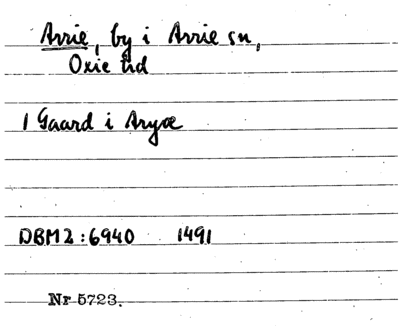 Arrie, by i Arrie sn,
Oxie hd
1 Gaard i Aryæ
DBM2:6940 1491
Nr 5723.